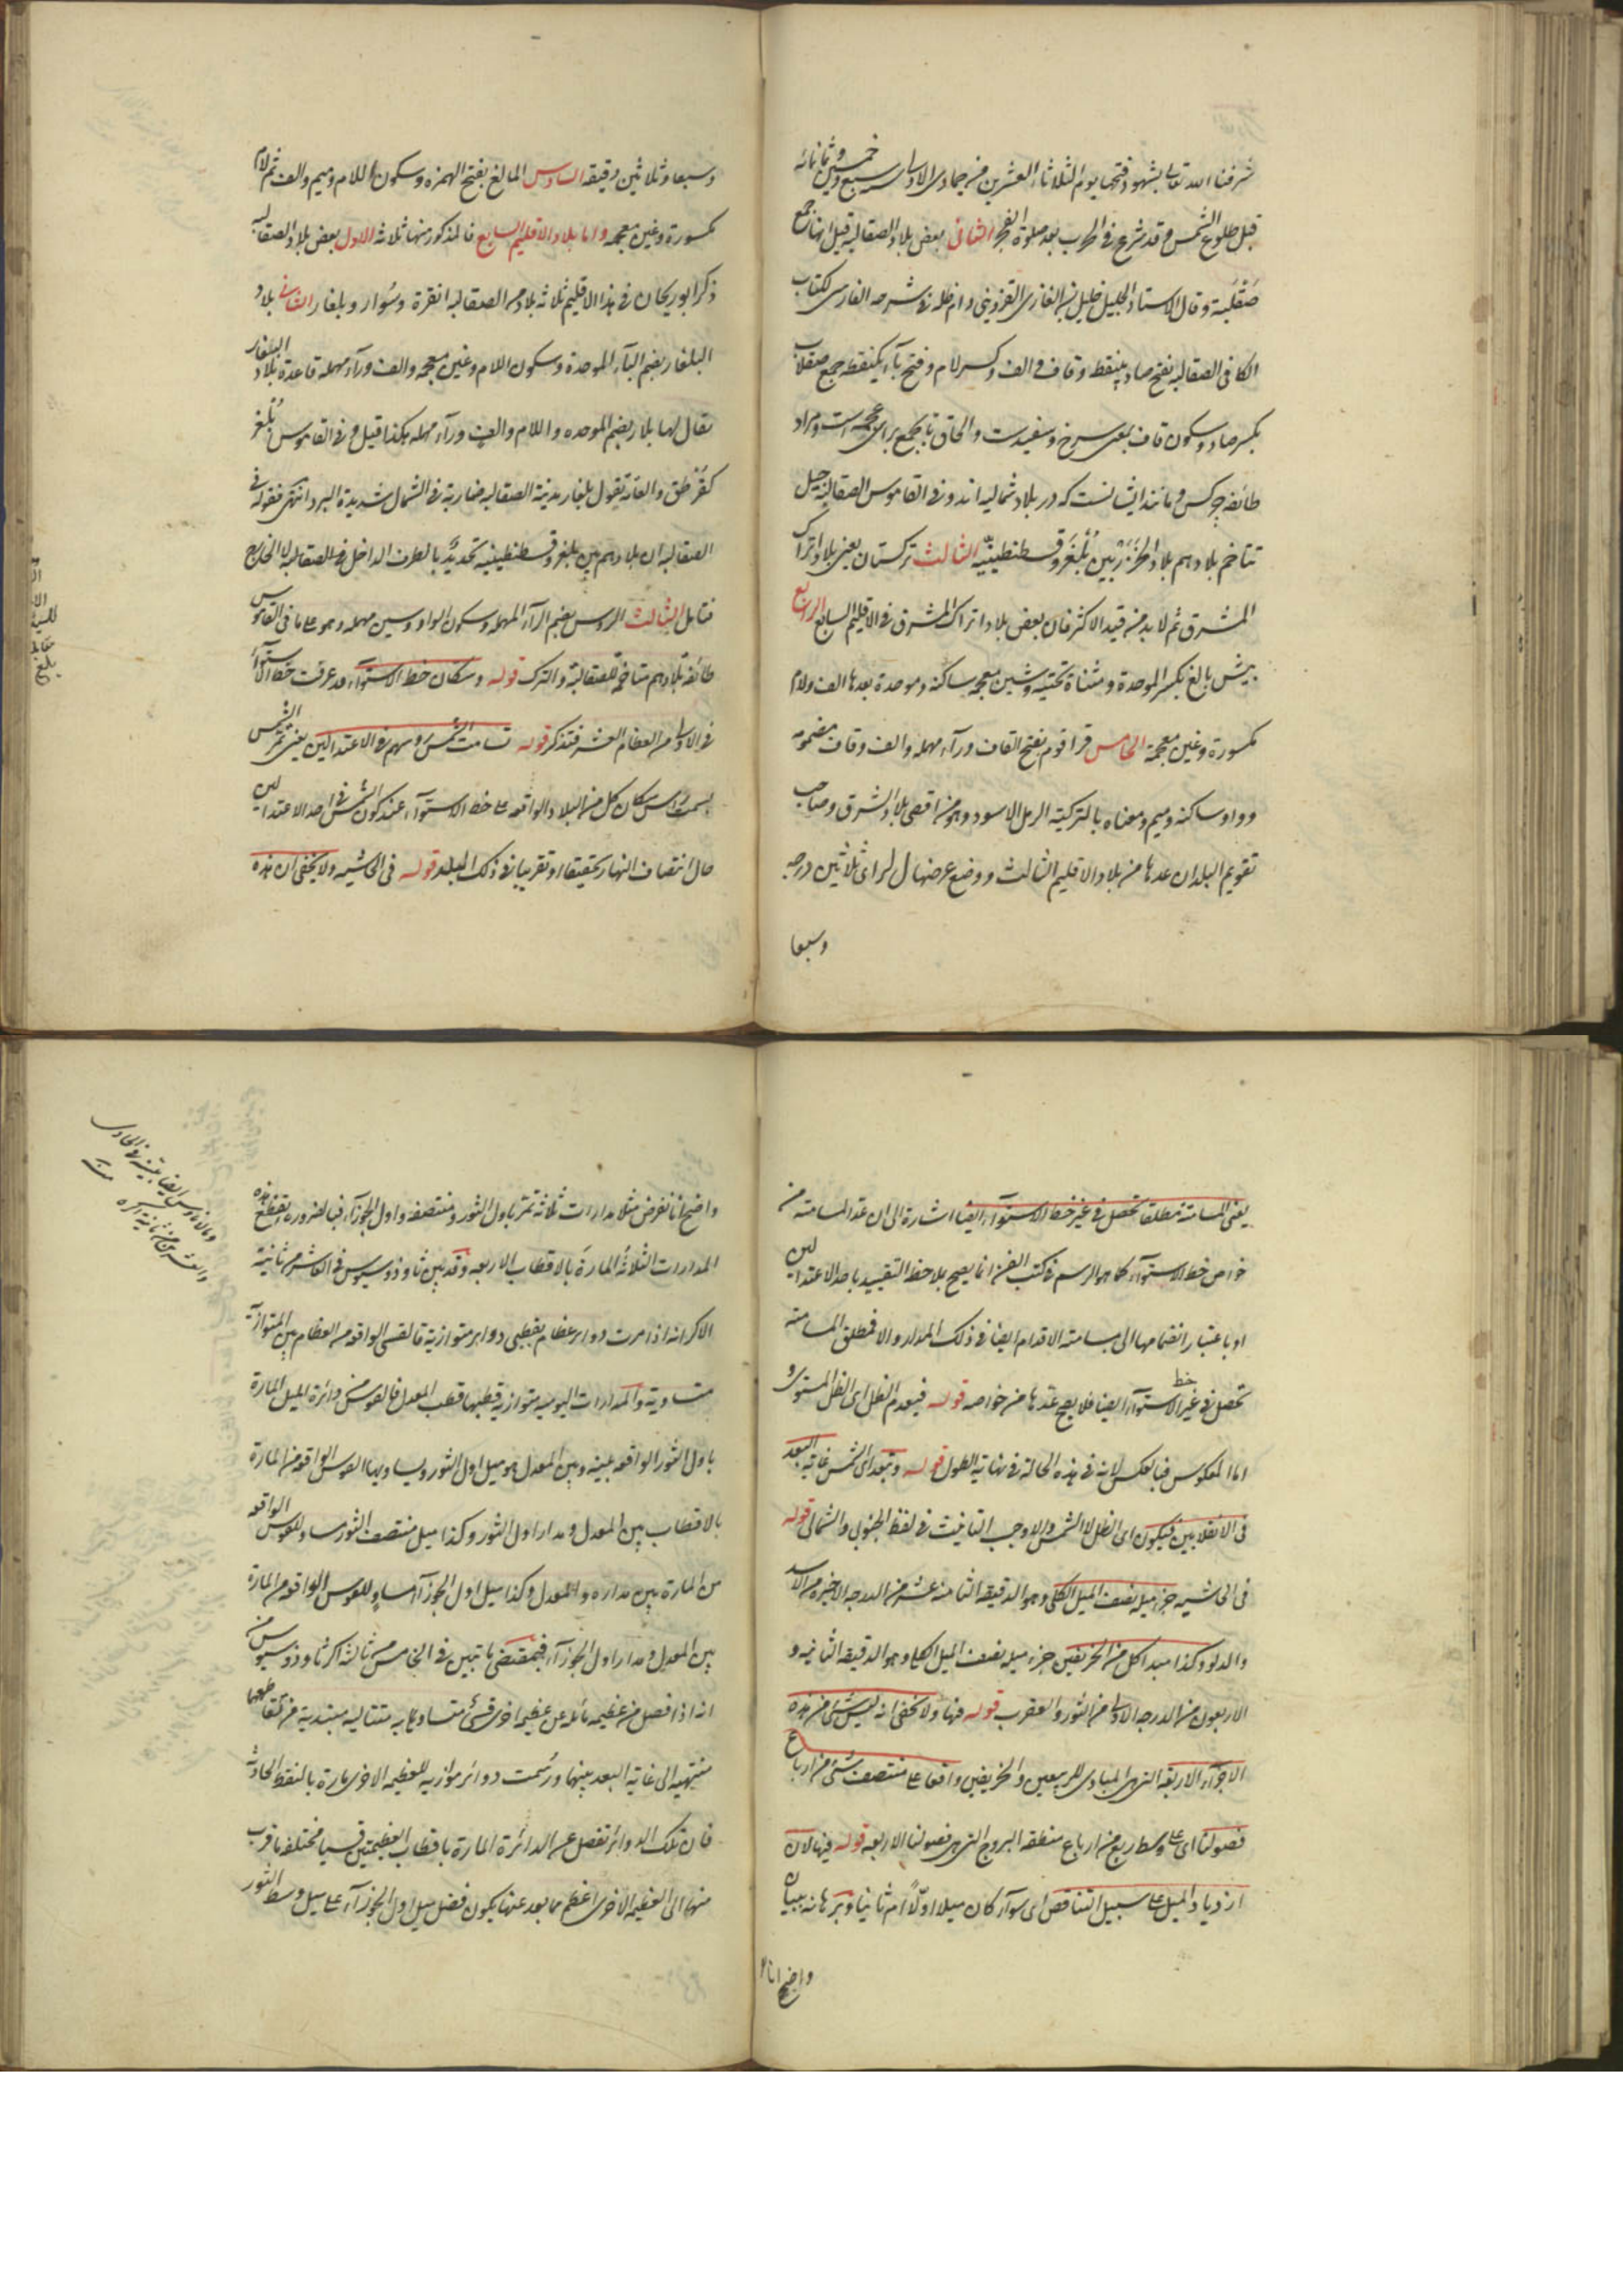 شرفنا الله تعالى بشهود فتحها يوم الثلاثاء العشرين من جمادى الاولى سبع وخمسين وثمانمائة
قبل طلوع الشمس وقد شرع في الحرب بعد صلوة الفجر الثاني بعض بلاد الصقالبة قيل انها جمع
صَقْلَبة وقال الاستاد الجليل خليل بن الغازي القزويني دام ظله في شرحه الفارسي لكتاب
الكافي الصقالبه بفتح صاد بينقط وقاف والف وكسر لام وفتح باء يكنقطه جمع صقلاب
بكسر صاد وسكون قاف بمعنى سرخ وسفيدست والحاق تا بجمع براى عجمه است ومراد
طائفه چركس ومانند ايشانست كه در بلاد شماليه اند وفي القاموس الصقالبة جيل
تتاخم بلادهم بلاد الخزر بين بُلْغَر وقسطنطينيّة الثالث تركستان يعني بلاد اتراك
المشرق ثم لا بد من قيد الاكثر فان بعض بلاد اتراك المشرق في الاقليم السابع الرابع
بيش بالغ بكسر الموحدة ومثناة تحتيه وشين معجمه ساكنة وموحدة بعدها الف ولام
مكسورة وغين معجمة الخامس قراقوم بفتح القاف وراء مهمله والف وقاف مضمومه
وواو ساكنه وميم ومعناه بالتركية الرمل الاسود وهو من اقصى بلاد الشرق وصاحب
تقويم البلدان عدها من بلاد الاقليم الثالث ووضع عرضها ل لز اى ثلاثين درجه
وسبعا
وسبعا وثلاثين دقيقه السادس المالغ بفتح الهمزه وسكون اللام وميم والف ثم لام
مكسورة وغين معجمه واما بلاد الاقليم السابع فالمذكور منها ثلاثه الاول بعض بلاد الصقالبه
ذكر ابو ريحان في هذا الاقليم ثلاثه بلاد من الصقالبه انقرة وسُوار وبلغار الثاني بلاد
البلغار بضم الباء الموحدة وسكون اللام وغين معجمه والف وراء مهمله قاعدة بلاد البلغار
يقال لها بلار بضم الموحده واللام والف وراء مهمله هكذا قيل وفي القاموس بُلْغَر
كقرطق والعامّة تقول بلغار مدينة الصقالبه ضاربة في الشمال شديدة البرد انتهى فقوله في
الصقالبه ان بلادهم بين بلغر وقسطنطينيه تحديد بالطرف الداخل في الصقالبه لا الخارج
فتامل الثالث الروس بضم الراء المهمله وسكون الواو وسين مهمله وهو على ما في القاموس
طائفه بلادهم متاخمة للصقالبة والترك قوله وسكان خط الاستواء قد عرفت خط الاستواء
في الاولى من العظام العشر فتذكر قوله تسامت الشمس رؤسهم في الاعتدالين يعني تمر الشمس
بسمت رأس سكان كل من البلاد الواقعه على خط الاستواء عند كون الشمس في احد الاعتدالين
حال انتصاف النهار تحقيقا او تقريبا في ذلك البلد قوله في الحاشيه ولا يخفى ان هذه
يعني المسامتة مطلقا تحصل في غير خط الاستواء ايضا اشارة الى ان عد المسامته من
خواص خط الاستواء كما هو الرسم في كتب الفن انما يصح بملاحظة التقييد باحد الاعتدالين
او باعتبار انضمامها الى مسامتة الاقدام ايضا في ذلك المدار والا فمطلق المسامته
تحصل في غير خط الاستواء ايضا فلا يصح عدها من خواصه قوله فيعدم الظل اى الظل المستوى و
اما المعكوس فبالعكس لانه في هذه الحالة في نهاية الطول قوله وتبعد اى الشمس غاية البعد
في الانقلابين فيكون اى الظل لا الشمس والا وجب التانيث في لفظ الجنوبي والشمالي قوله
في الحاشيه جزء ميله نصف الميل الكلى وهو الدقيقه الثامنه عشر من الدرجه الاخيره من الاسد
والدلو وكذا مبدا كل من الخريفين جزء ميله نصف الميل الكلى وهو الدقيقه الثانيه و
الاربعون من الدرجه الاولى من الثور والعقرب قوله فيها ولا يخفى انه ليس شئ من هذه
الاجزاء الاربعة التي هي المبادى للربيعين والخريفين واقعا على منتصف شئ من ارباع
فصولنا اى على وسط ربع من ارباع منطقه البروج التي هي فصولنا الاربعه قوله فيها لان
ازدياد الميل على سبيل التناقص اى سوآء كان ميلا اوّلاً ام ثانيا وبرهانه ببيان
واضح انا
واضح انا نفرض مثلا مدارات ثلاثة تمر باول الثور ومنتصفه واول الجوزاء فبالضرورة تقطع هذه
المدارات الثلاثه المارة بالاقطاب الاربعه وقد بين ثاوذوسيوس في العاشر من ثانية
الاكر انه اذا مرت دوائر عظام بقطبى دوائر متوازية فالقسى الواقعه من العظام بين المتوازية
متساوية والمدارات اليوميه متوازية قطبها قطب المعدل فالقوس من دائرة الميل المارة
باول الثور الواقعه بينه وبين المعدل هو ميل اول الثور ويساويها القوس الواقعه من المارة
بالاقطاب بين المعدل ومدار اول الثور وكذا ميل منتصف الثور مساو للقوس الواقعه
من المارة بين مداره والمعدل وكذا ميل اول الجوزاء مساوٍ للقوس الواقعه من المارة
بين المعدل ومدار اول الجوزاء فبمقتضى ما تبين في الخامس من ثالثة اكر ثاوذوسيوس من
انه اذا فصل من عظيمه مائله عن عظيمه اخرى قسىّ متساويه متتاليه مبتدية من تقاطعهما
منتهيه الى غاية البعد بينهما ورسمت دوائر موازيه للعظيمه الاخرى مارة بالنقط الحادثه
فان تلك الدوائر تفصل من الدائرة المارة باقطاب العظيمتين قسيا مختلفه ما قرب
منها الى العظيمه الاخرى اعظم مما بعد عنها يكون فضل ميل اول الجوزاء على ميل وسط الثور